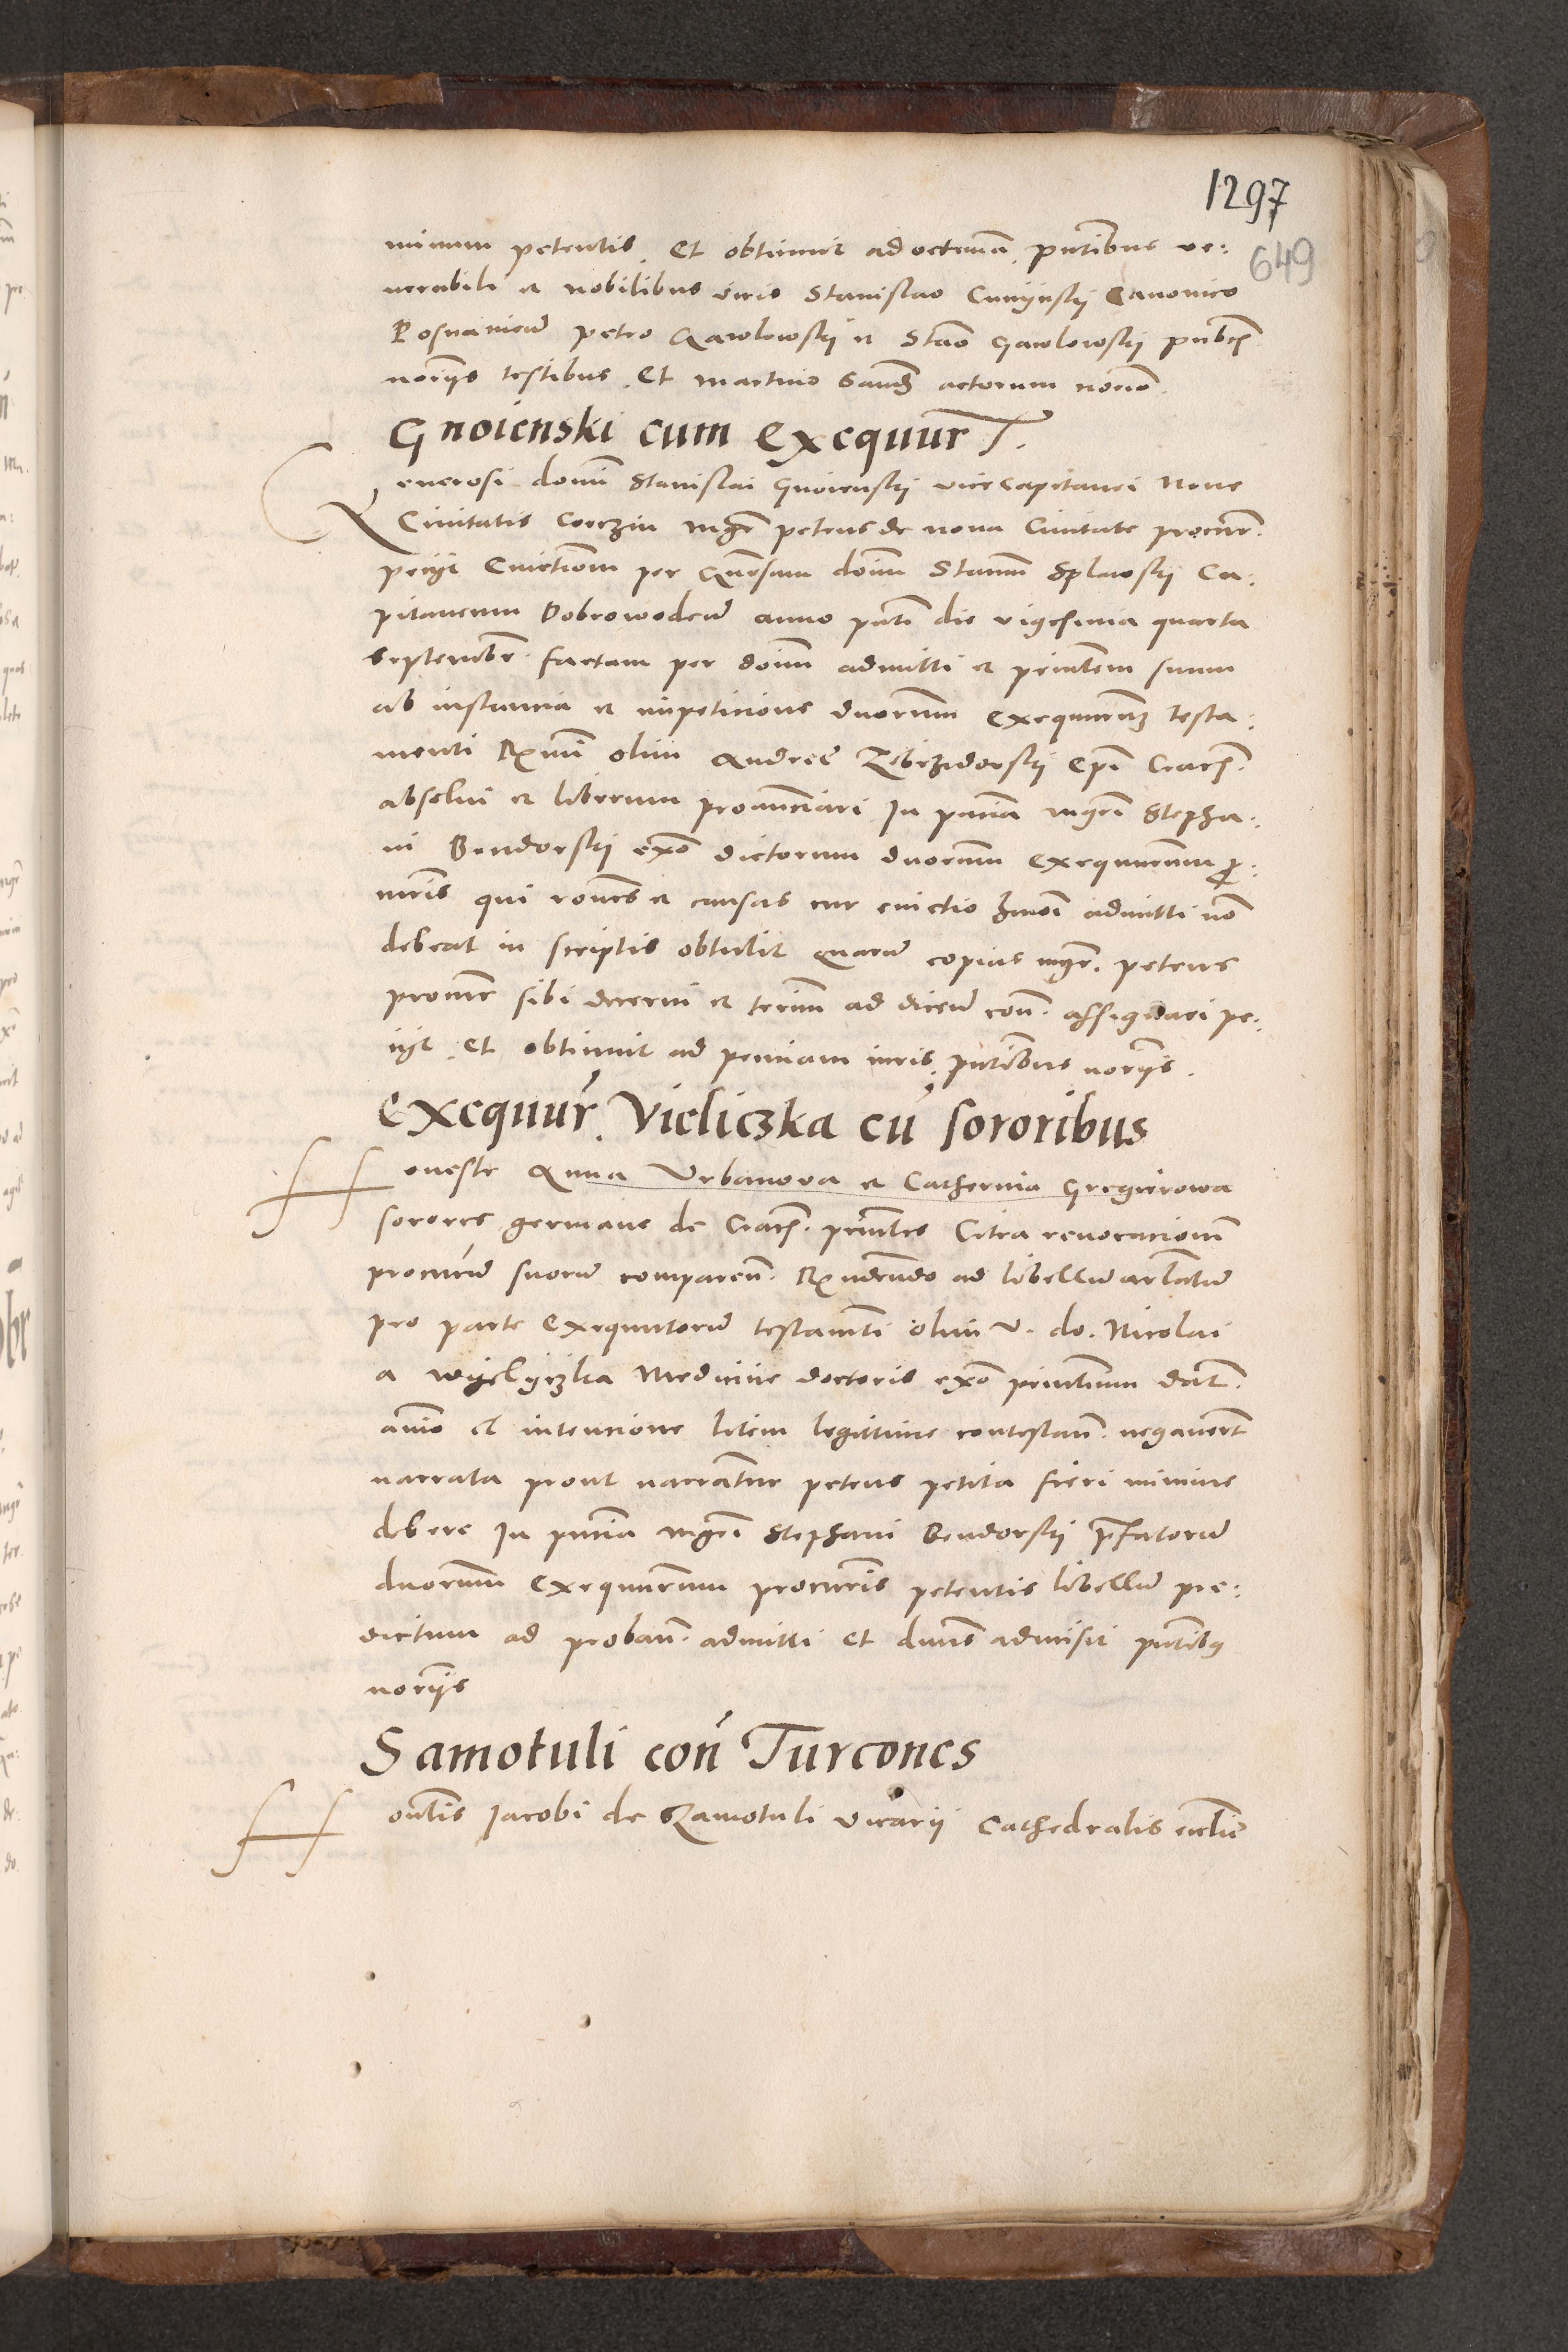 1297
649
minum petentis. Et obtinuit ad octavam. pntibus ve:
nerabili et nobilibus viris Stanislao Canonico
Posnanien Petro Gawlowskij et Stao Gawlowskij
norijs testibus. Et Martino actorum norio.
Gnoienski cum Exequut T.
Generosi domi Stanislai Gnoienskij vicecapitanei Nove
Civitatis Corczin mgr petrus de nova Civitate procur.
petijt Evictiom per Gnosum doim Stanm Splawskij Ca:
pitaneum Dobrowodcen anno pnti die vigesima quarta
Septembr. factam per doim admitti et principlem suum
ab instancia et impeticione dnorum exequutorum testa:
menti Rmi olim Andree Zebrzidowskij Epi Cracn.
absolvi et liberum pronunciari In pncia mgri Stepha:
ni Bendorskij exo dictorum dnorum exequutorum pro:
curis qui rones et causas cur evictio hmoi admitti no
debeat in scriptis obtulit quarum copias mgr. petrus
procur sibi decerni et terim ad dicen con. assignari pe:
ijt. Et obtinuit ad primam iuris. pntibus norijs.
Exequut. Vieliczka cu sororibus
Honeste Anna Vrbanowa et Catherina Gregierowa
sorores germane de Cracn. principles Citra revocacionem
procurum suorum comparen. Rndendo ad libellum articlatum
pro parte Exequutorum testamti olim V. do. Nicolai
a Wyelyczka Medicine doctoris exo principlium dat.
animo et intencione litem legittime contestan. negavert
narrata prout narrantur petens petita fieri minime
debere In pncia mgri Stephani Bendorskij prefatorum
dnorum exequutorum procuris petentis libellum pre:
dictum ad proban. admitti et dnus admisit pntibus
norijs
Samotuli con Turcones
Honblis Jacobi de Szamotuli vicarij Cathedralis ecclie